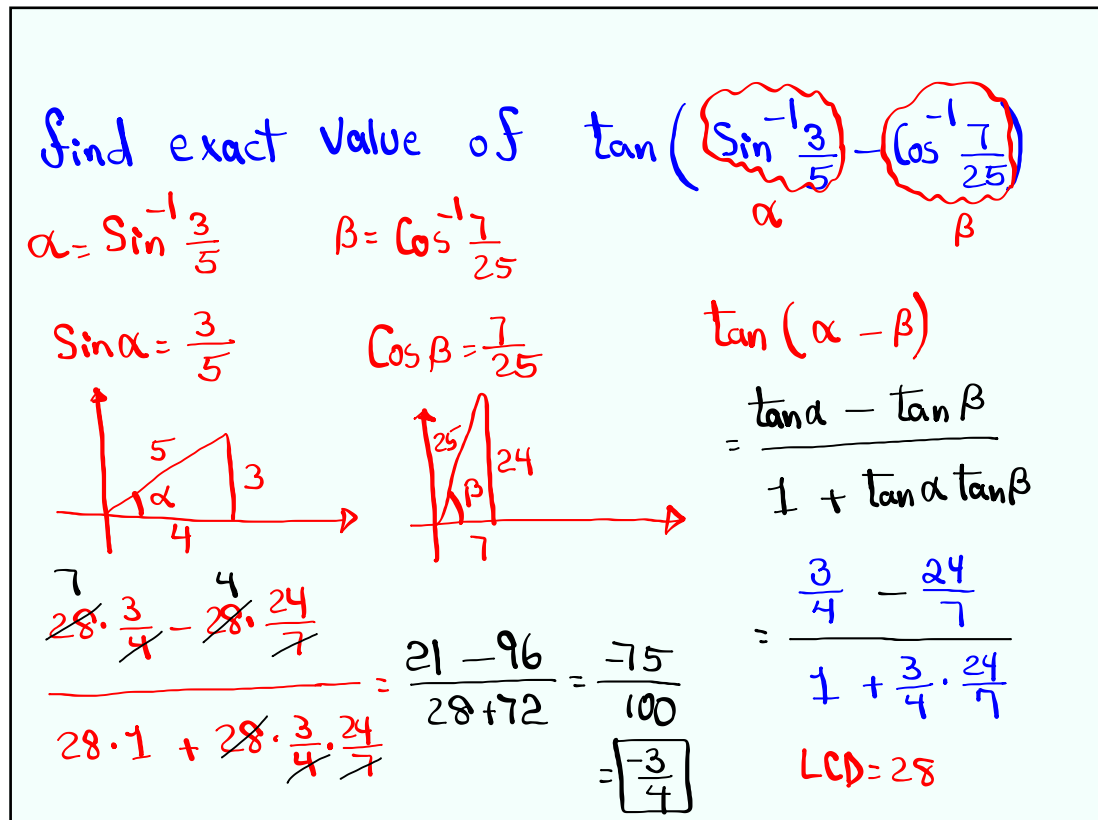 find exact Value of tan(Sin⁻¹ 3/5 - Cos⁻¹ 7/25)
α β
α = Sin⁻¹ 3/5 β = Cos⁻¹ 7/25
Sin α = 3/5 Cos β = 7/25 tan(α - β)
= (tan α - tan β)/(1 + tan α tan β)
5 3 α 4
25 24 β 7
= (3/4 - 24/7)/(1 + 3/4 · 24/7)
LCD = 28
7 4
(28 · 3/4 - 28 · 24/7)/(28 · 1 + 28 · 3/4 · 24/7) = (21 - 96)/(28 + 72) = -75/100
= -3/4